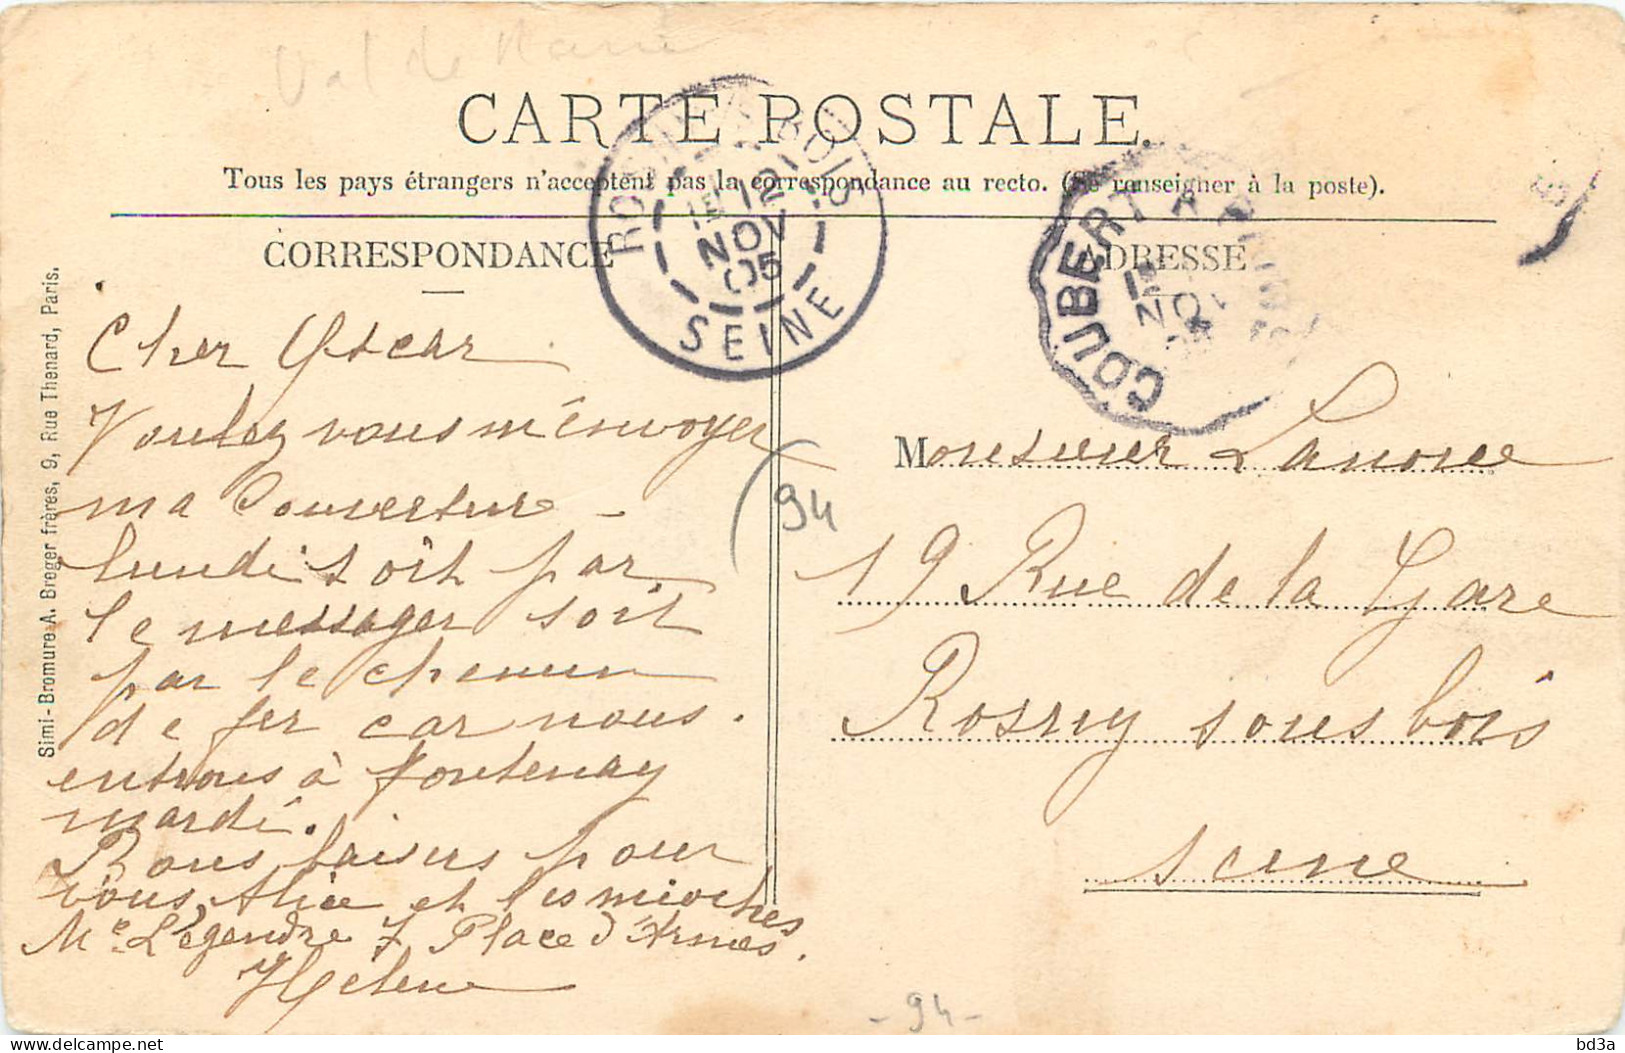 Val de Marne
CARTE POSTALE.
Tous les pays étrangers n'acceptent pas la correspondance au recto. (Se renseigner à la poste).
CORRESPONDANCE
ADRESSE
ROSNY-S-BOIS
12
NOV
05
SEINE
COUBERT A
NOV
Simi-Bromure A. Breger frères, 9, Rue Thenard, Paris.
Cher Oscar
Voulez vous m'envoyer
ma Couverture -
lundi soit par
le messager soit
par le chemin
de fer car nous.
entrons à fontenay
mardi.
Bons baisers pour
vous, Alice et les mioches
Me Legendre 7 Place d'Armes.
Helene
(94
Monsieur Lanoue
19 Rue de la Gare
Rosny sous bois
Seine
- 94 -
bd3a